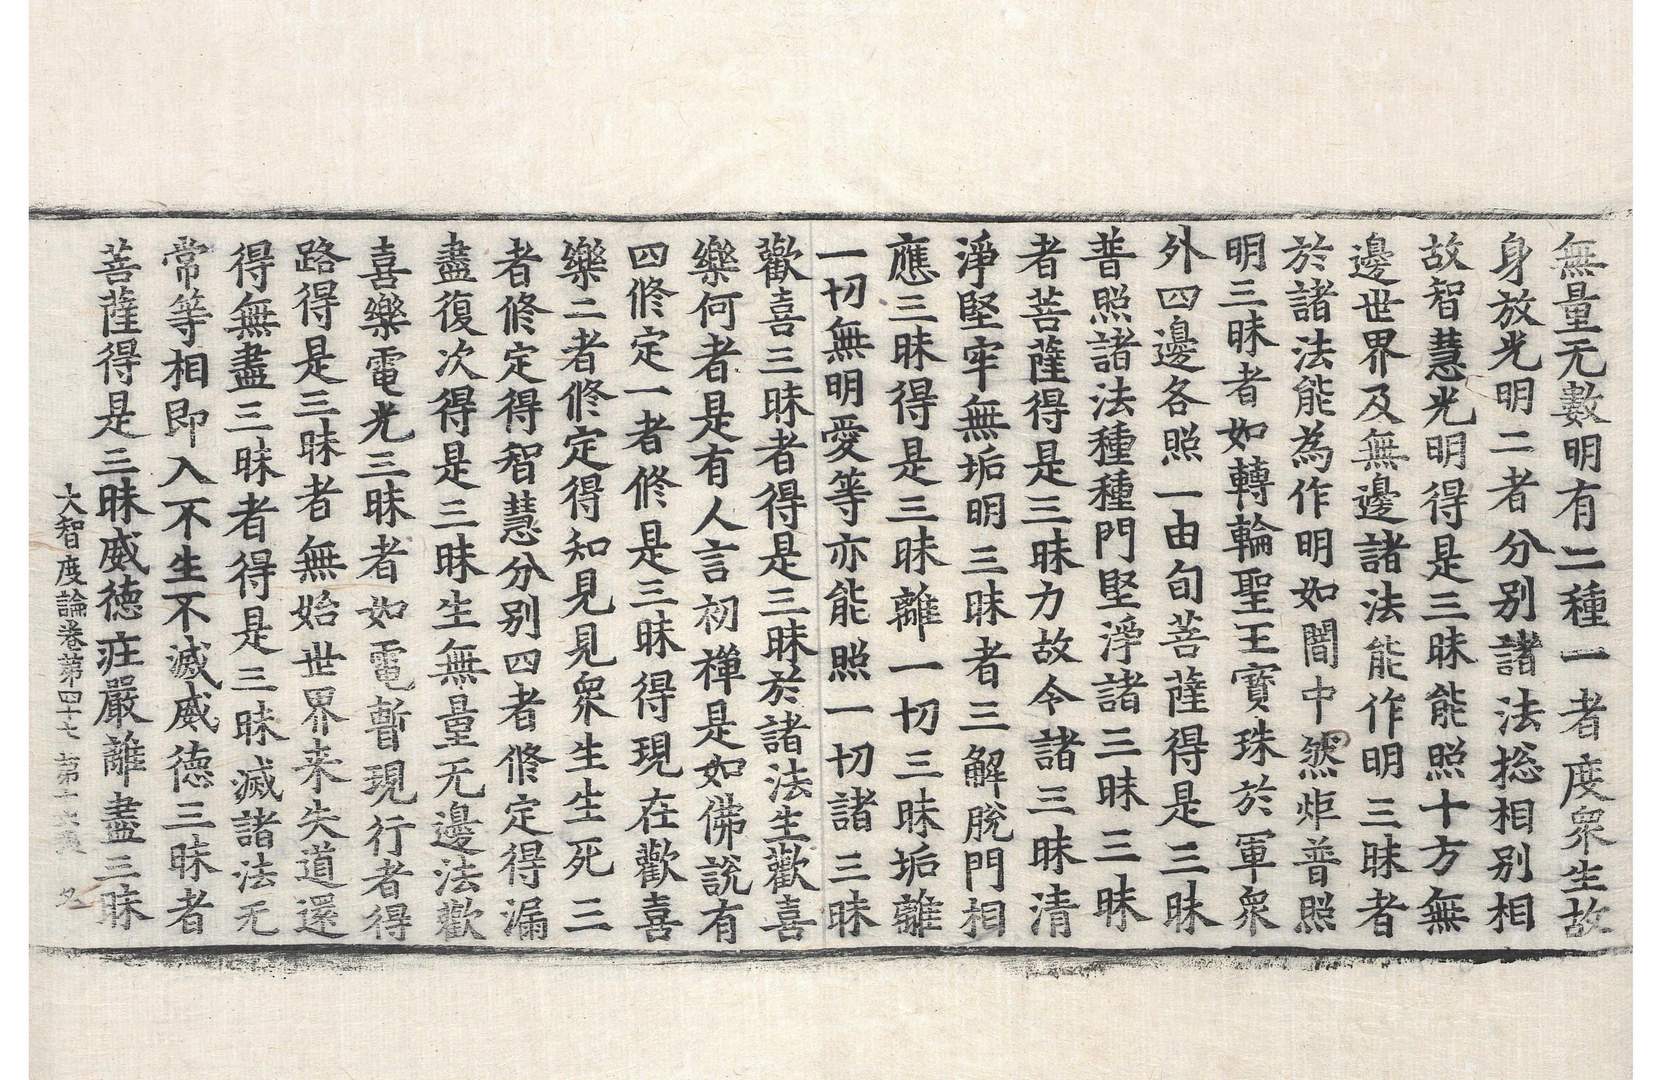 無量无數明有二種一者度衆生故
身放光明二者分別諸法捴相別相
故智慧光明得是三昧能照十方無
邊世界及無邊諸法能作明三昧者
於諸法能為作明如闇中然炬普照
明三昧者如轉輪聖王寶珠於軍衆
外四邊各照一由旬菩薩得是三昧
普照諸法種種門堅淨諸三昧三昧
者菩薩得是三昧力故令諸三昧清
淨堅牢無垢明三昧者三解脫門相
應三昧得是三昧離一切三昧垢離
一切無明愛等亦能照一切諸三昧
歡喜三昧者得是三昧於諸法生歡喜
樂何者是有人言初禪是如佛說有
四修定一者修是三昧得現在歡喜
樂二者修定得知見見衆生生死三
者修定得智慧分別四者修定得漏
盡復次得是三昧生無量无邊法歡
喜樂電光三昧者如電暫現行者得
路得是三昧者無始世界来失道還
得無盡三昧者得是三昧滅諸法无
常等相即入不生不滅威德三昧者
菩薩得是三昧威德疘嚴離盡三昧
大智度論卷第四十七 第十六張 夕